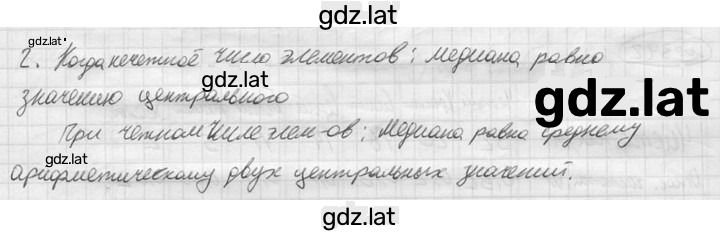 gdz.lat
gdz.lat
2. Когда нечетное число элементов: медиана равна
значению центрального
gdz.lat
При четном числе элем-ов: медиана равна среднему
gdz.lat
арифметическому двух центральных значений.
gdz.lat